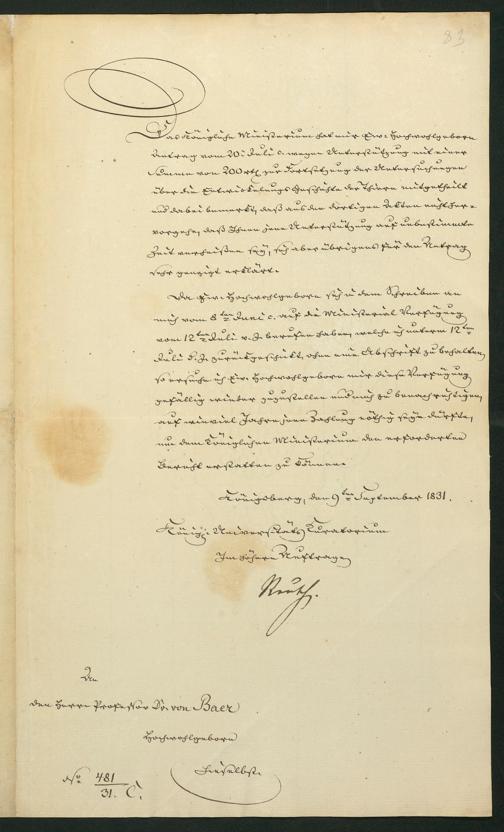 83
Das Königliche Ministerium hat mir Ew: Hochwohlgeborn
Antrag vom 20. Juli c. wegen Unterstützung mit einer
Summe von 200 rtl. zur Fortsetzung der Untersuchungen
über die Entwickelungs Geschichte der Thiere mitgetheilt
und dabei bemerkt, daß aus den dortigen Akten nicht her=
vorgehe, daß Ihnen jene Unterstützung auf unbestimmte
Zeit verheißen sey, sich aber übrigens für den Antrag
sehr geneigt erklärt.
Da Ew: Hochwohlgeborn sich in dem Schreiben an
mich vom 8ten Juni c. auf die Ministerial Verfügung
vom 12ten Juli v. J. berufen haben, welche ich unterm 12ten
Juli d. J. zurückgeschickt, ohne eine Abschrift zu behalten,
so ersuche ich Ew: Hochwohlgeborn mir diese Verfügung
gefällig wieder zuzustellen und mich zu benachrichtigen,
auf wieviel Jahre jene Zahlung nöthig seyn dürfte,
um dem Königlichen Ministerium den erforderten
Bericht erstatten zu können.
Königsberg, den 9ten September 1831.
Königl: Universitäts Curatorium
Im höhern Auftrage
An
den Herrn Professor Dr. von Baer
Hochwohlgeborn
hieselbst.
No. 481
31. C.